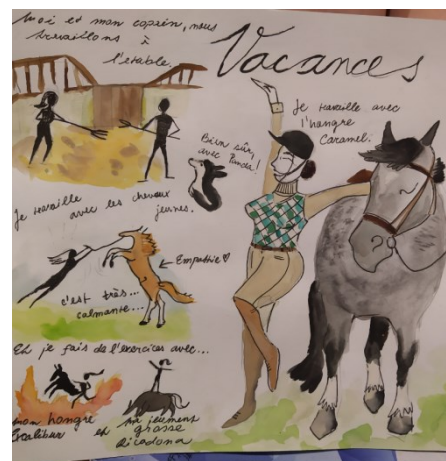 Moi et mon copain, nous
travaillons à
l'étable.
Vacances
Je travaille avec
l'hongre
Caramel.
Bien sûr,
avec Panda!
Je travaille
avec les chevaux
jeunes.
← Empathie ♡
c'est très...
calmante...
Et je fais de l'exercices avec...
mon hongre
Excalibur
et ma jument
grasse